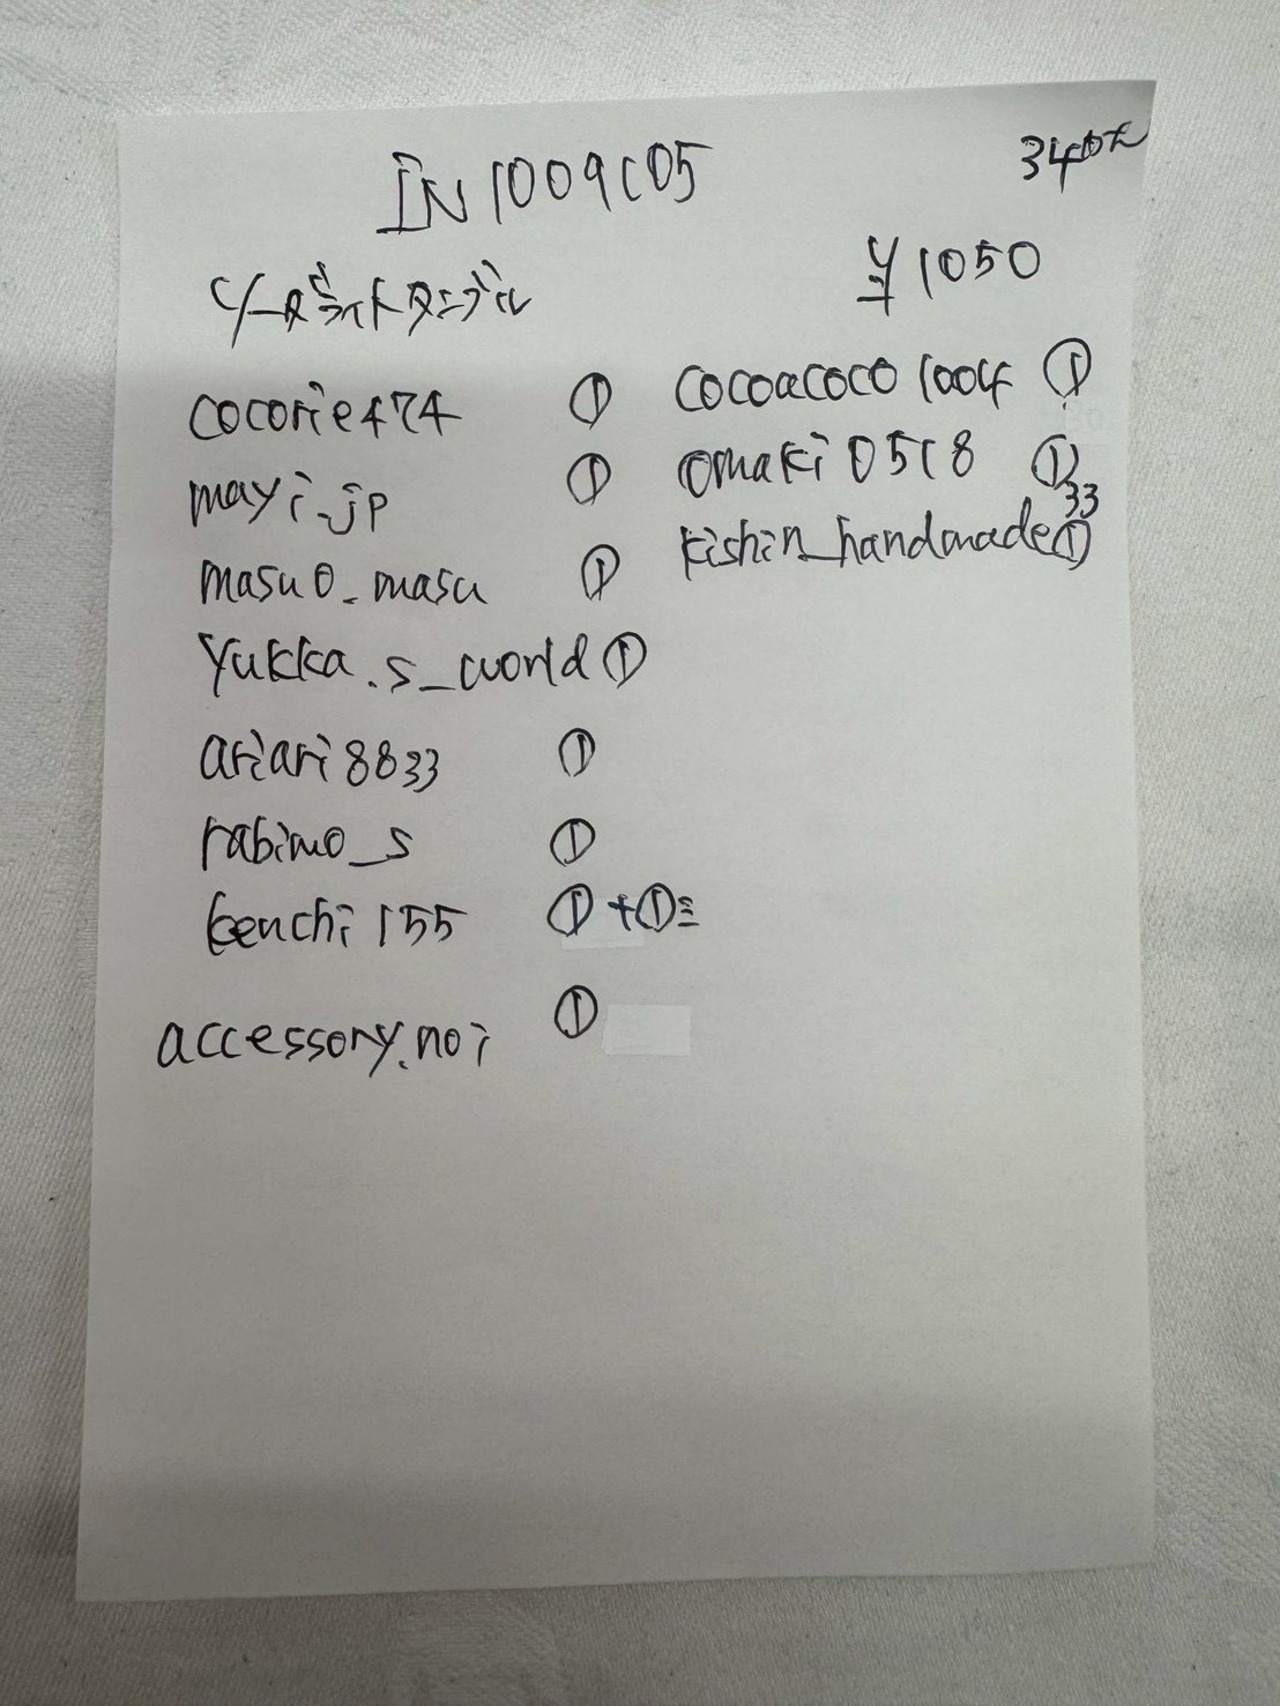 IN1009105
¥1050
cocorie474 ①
mayi_jp ①
masu0_masu ①
yukka.s_world ①
ariari8833 ①
rabimo_s ①
kenchi155 ①+①
accessory.noi ①
cocoacoco1004 ①
omaki0518 ①
33
kishin_handmade ①